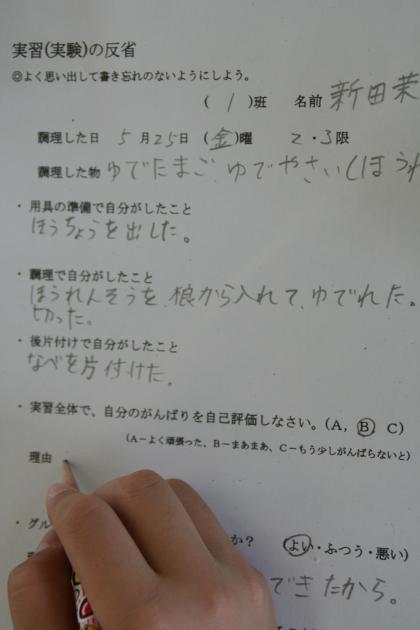 実習(実験)の反省
◎よく思い出して書き忘れのないようにしよう。
( 1 )班 名前 新田茉
調理した日 5月25日 (金)曜 2・3限
調理した物 ゆでたまご、ゆでやさい(ほうれ
・用具の準備で自分がしたこと
ほうちょうを出した。
・調理で自分がしたこと
ほうれんそうを、根から入れて、ゆでれた。
切った。
・後片付けで自分がしたこと
なべを片付けた。
・実習全体で、自分のがんばりを自己評価しなさい。(A, B C)
(A－よく頑張った、B－まあまあ、C－もう少しがんばらないと)
理由
・グル
か? (よい・ふつう・悪い)
できたから。